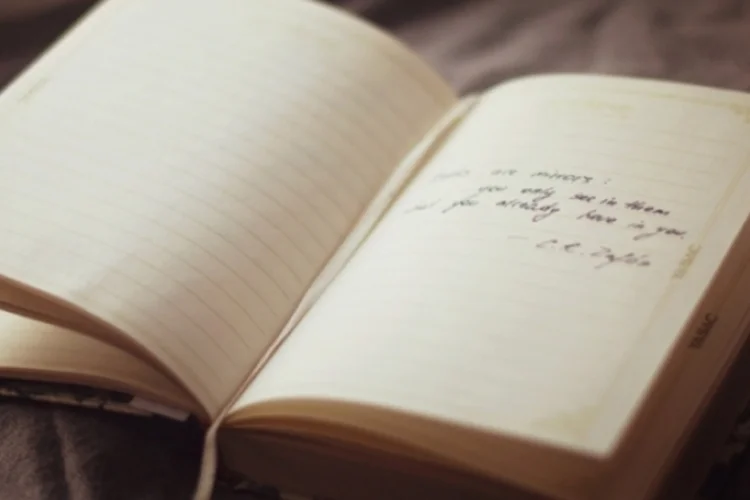 are mirrors:
you only see in them
you already have in you.
- C.R. Zafón